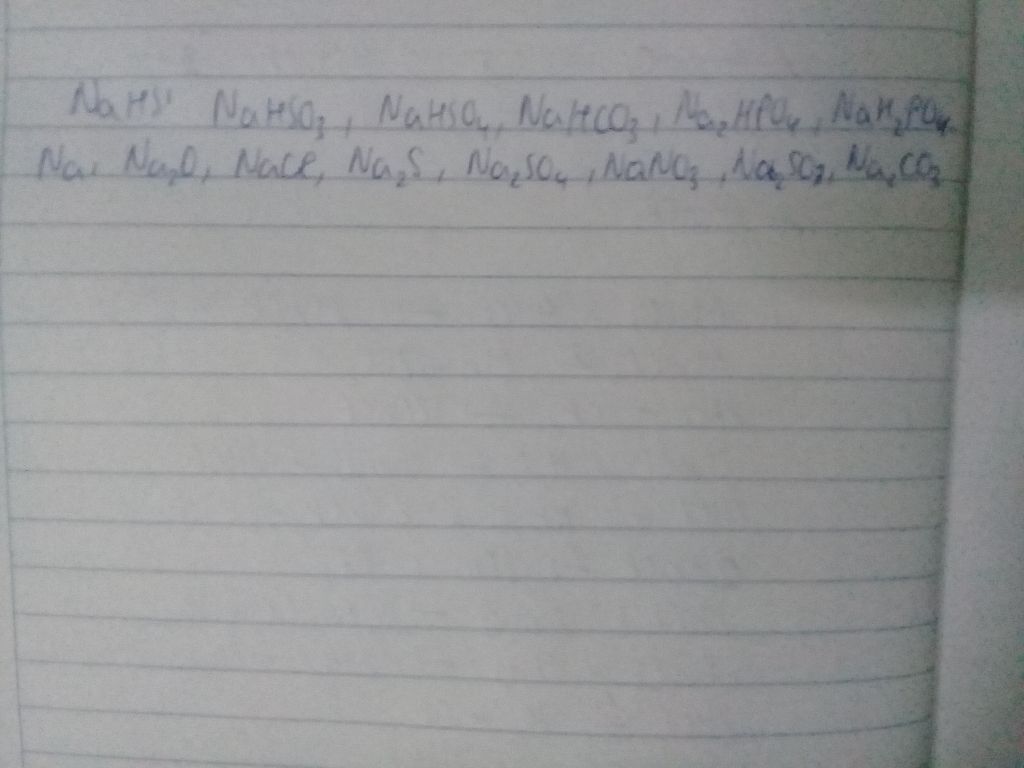 NaHS, NaHSO₃, NaHSO₄, NaHCO₃, Na₂HPO₄, NaH₂PO₄
Na, Na₂O, NaCl, Na₂S, Na₂SO₄, NaNO₃, Na₂SO₃, Na₂CO₃